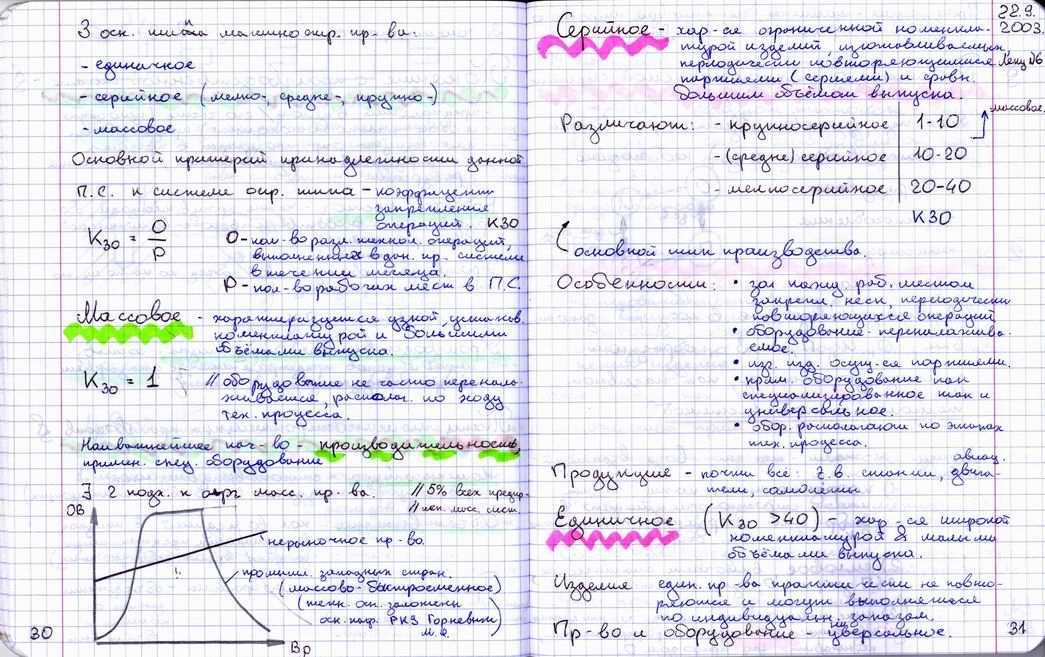 3 осн. типа машиностр. пр-ва:
- единичное
- серийное (мелко-, средне-, крупно-)
- массовое
Основной критерий принадлежности данной
П.С. к системе опр. типа - коэффициент
закрепления
операций. КЗО
Kзо = O/P
О - кол-во разл. технол. операций,
выполняемых в дан. пр. системе
в течении месяца.
Р - кол-во рабочих мест в П.С.
Массовое - характеризуется узкой, установ.
номенклатурой и большими
объёмами выпуска.
Kзо = 1 // оборудование не часто перенала-
живается, располаг. по ходу
тех. процесса.
Наиважнейшее кач-во - производительность
примен. спец. оборудование
∃ 2 подх. к орг масс. пр-ва. // 5% всех предпр.
// исп. масс. сист.
ОВ
нерыночное пр-во.
промышл. западных стран.
(массово-быстросменное)
(техн. осн. заложены
осн. каф. РКЗ Горневым
М.Ф.
Вр
30
22.9.
2003.
Лекц №6
Серийное - хар-ся ограниченной номенкла-
турой изделий, изготавливаемых
периодически повторяющимися
партиями (сериями) и сравн.
большим объёмом выпуска.
Различают: - крупносерийное 1-10
массовое
- (средне) серийное 10-20
- мелкосерийное 20-40
КЗО
основной тип производства.
Особенности: • за кажд. раб. местом
закрепл. неск. периодически
повторяющихся операций
• оборудование переналажива-
емое.
• изг. изд. осущ-ся партиями.
• прим. оборудование как
специализированное так и
универсальное.
• обор. располагают по этапах
тех. процесса.
Продукция - почти все: г.в. станки, авиац. двига-
тели, самолёты
Единичное (Kзо >40) - хар-ся широкой
номенклатурой & малыми
объёмами выпуска.
Изделия един. пр-ва практически не повто-
ряются и могут выполняться
по индивидуальн. заказам.
Пр-во и оборудование - универсальное.
31